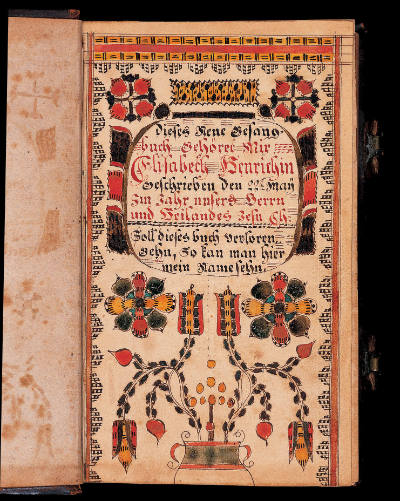 dieses Neue Gesang-
buch Gehöret Mir
Elisabeth Henrichin
Geschrieben den may
Im Jahr unsers Herrn
und Heilandes Jesu Ch.
Solt dieses buch verloren
gehn, So kan man hier
mein Name sehn.